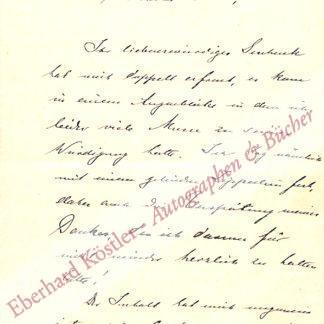 Ihr liebenswürdiges Geschenk
hat mich doppelt erfreut, es kam
in einem Augenblicke in dem ich
leider viele Musse zu
Würdigung hatte. Ich lag nämlich
mit einem gelinden fest,
daher auch d. Verspätung meines
Dankes, den ich darum für
nicht minder herzlich zu halten
bitte!
Der Inhalt hat mich ungemein
Eberhard Köstler - Autographen & Bücher